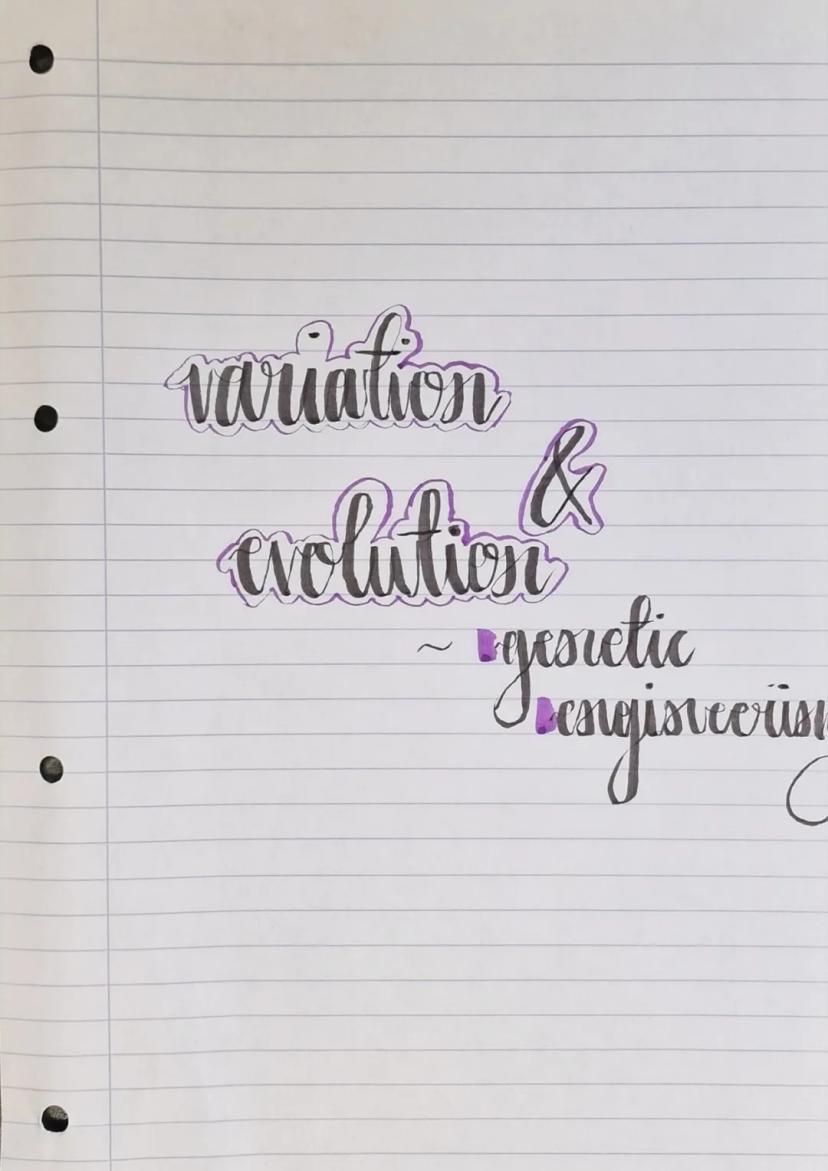 variation
&
evolution
~ genetic
engineerin